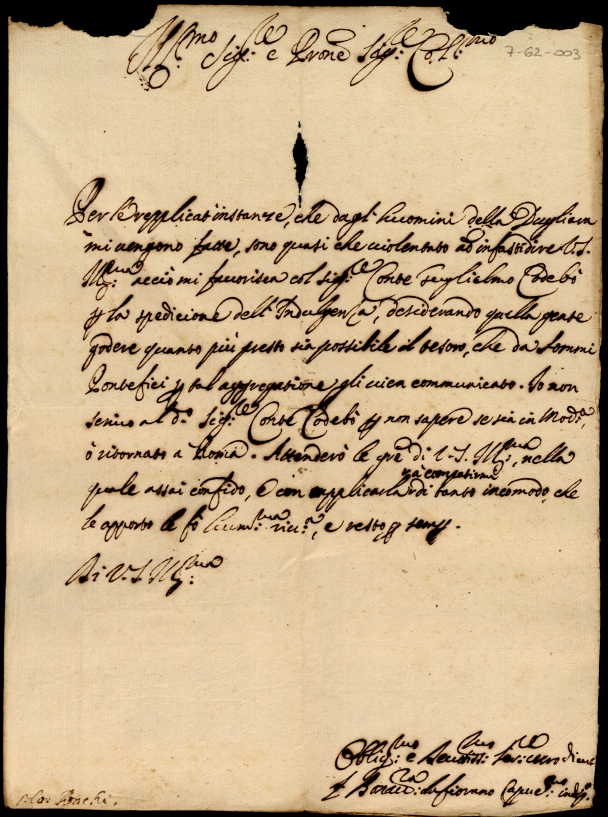 Ill:mo Sig:re e Prone Sig:re Col:mo
7-62-003
Per le repplicat instanze, che dagl' huomini della Pugliara
mi vengono fatte, sono quasi che violentato ad infastidire V.S.
Ill:ma acciò mi favorisca col Sig:re Conte Guglielmo Codebò
p la spedicione dell' Indulgenza, desiderando quella gente
godere quanto più presto sia possibile il tesoro, che da Sommi
Pontefici p tal aggregatione gli vien communicato. Io non
scrivo al d:o Sig:re Conte Codebò p non sapere se sia in Mod:a,
ò ritornato a Roma. Attenderò le gre di V.S. Ill:ma, nella
quale assai confido, e con supplicarla à compatirmi di tanto incomodo, che
le apporto le fò hum:ma riv:a, e resto p semp.
Di V.S. Ill:ma
Oblig:mo e Devotiss:mo Ser:re vero
F. da Fiorano Capuc:no